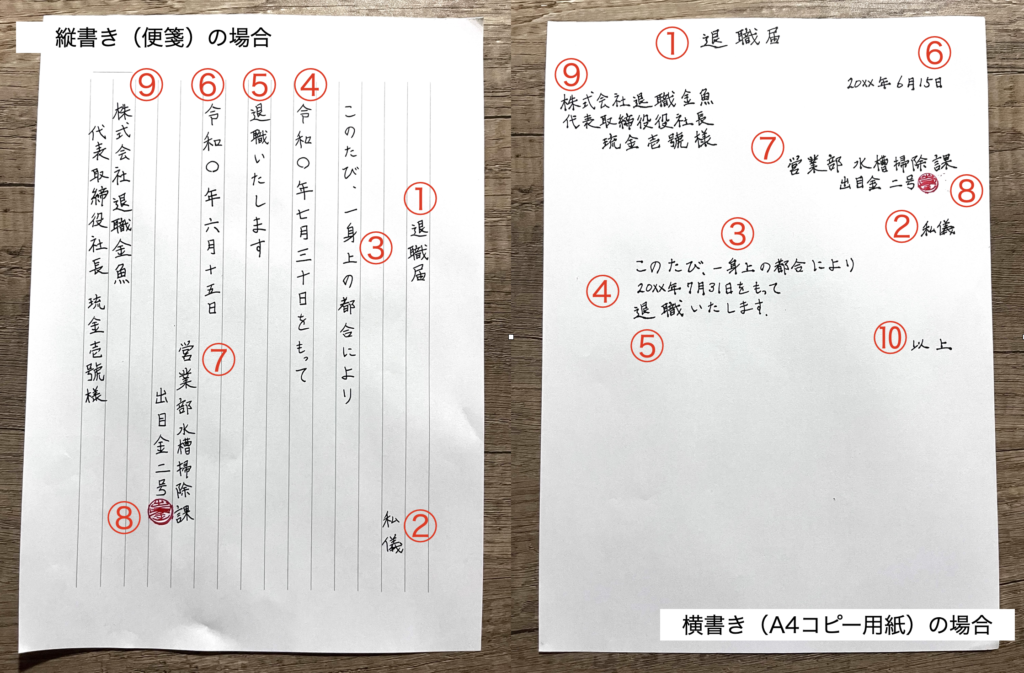 縦書き（便箋）の場合
① 退職届
② 私儀
③ このたび、一身上の都合により
④ 令和〇年七月三十日をもって
⑤ 退職いたします
⑥ 令和〇年六月十五日
⑦ 営業部水槽掃除課
出目金二号
⑧
⑨ 株式会社退職金魚
代表取締役社長 琉金壱號様
① 退職届
⑥ 20xx年6月15日
⑨ 株式会社退職金魚
代表取締役役社長
琉金壱號様
⑦ 営業部 水槽掃除課
出目金 二号
⑧
② 私儀
③ このたび、一身上の都合により
④ 20xx年7月31日をもって
退職いたします.
⑤
⑩ 以上
横書き（A4コピー用紙）の場合